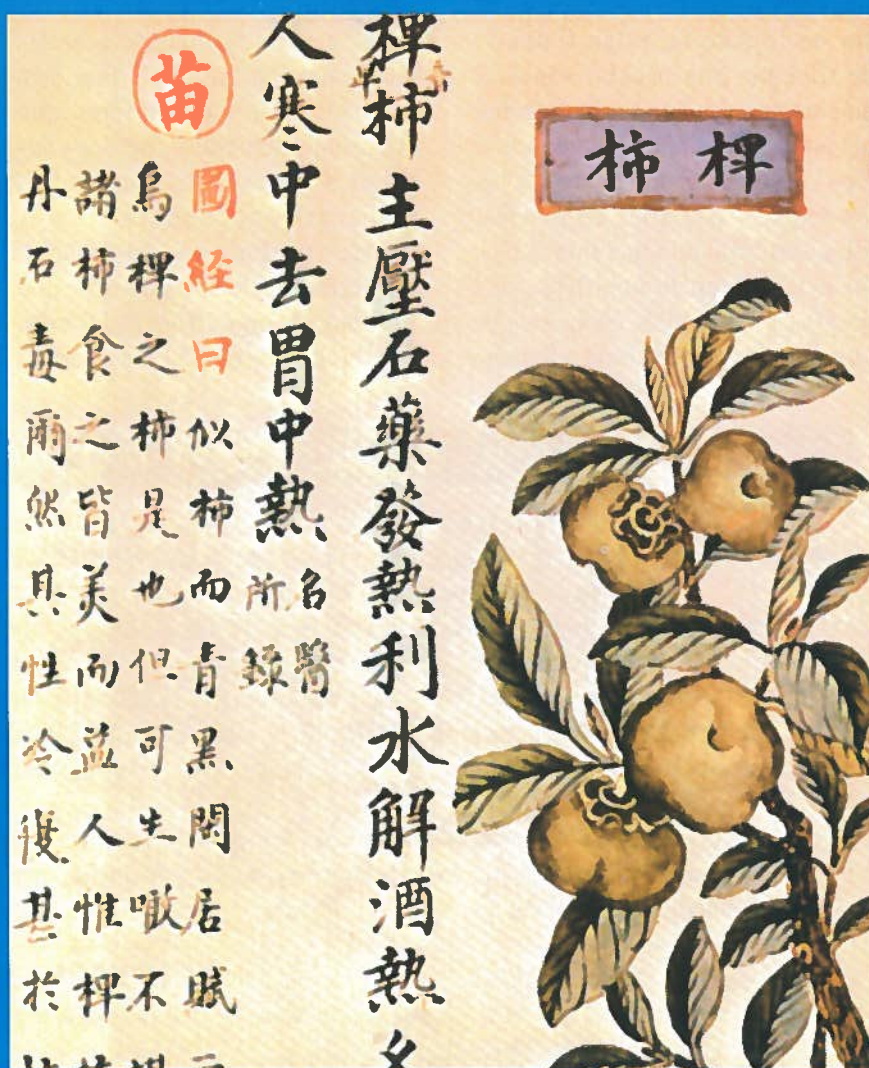 椑柿
椑柿音卑主壓石藥發熱利水解酒熱久
人寒中去胃中熱名醫所錄
苗
圖經曰似柿而青黑閑居賦
烏椑之柿是也但可生噉不
諸柿食之皆美而益人惟椑
丹石毒爾然其性冷復甚於